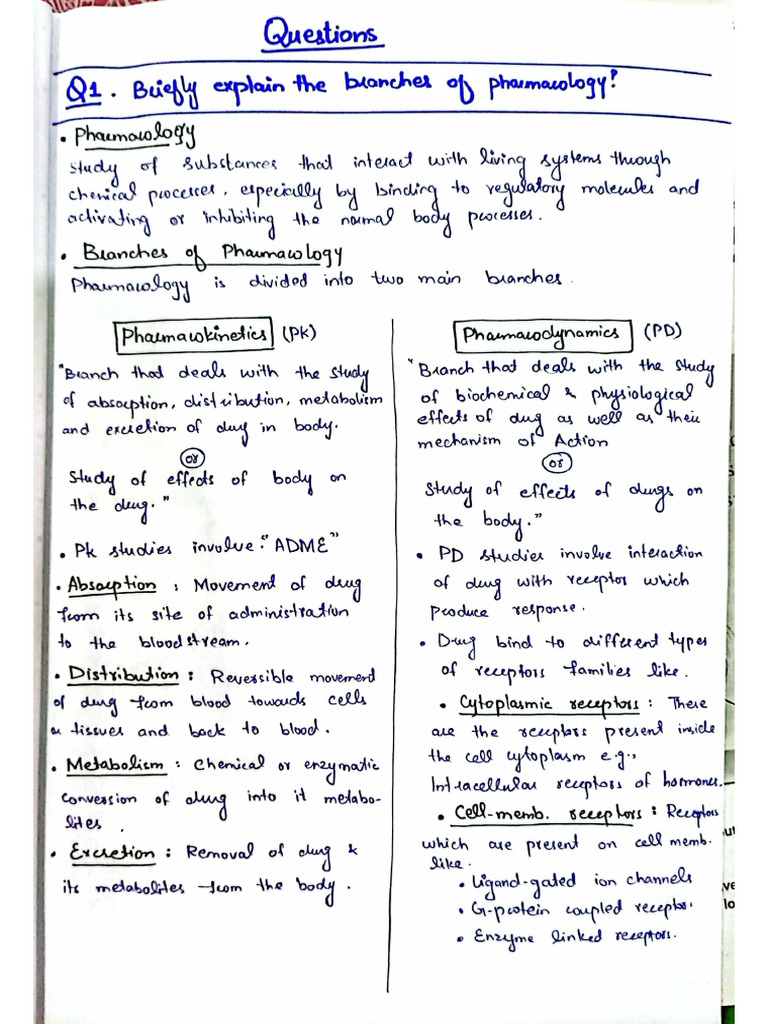 Questions
Q1. Briefly explain the branches of pharmacology?
• Pharmacology
Study of substances that interact with living systems through
chemical processes, especially by binding to regulatory molecules and
activating or inhibiting the normal body processes.
• Branches of Pharmacology
Pharmacology is divided into two main branches.
Pharmacokinetics (PK)
"Branch that deals with the study
of absorption, distribution, metabolism
and excretion of drug in body.
or
Study of effects of body on
the drug."
• Pk studies involve: "ADME"
• Absorption : Movement of drug
from its site of administration
to the bloodstream.
• Distribution : Reversible movement
of drug from blood towards cells
or tissues and back to blood.
• Metabolism : Chemical or enzymatic
conversion of drug into it metabo-
lites.
• Excretion : Removal of drug &
its metabolites from the body.
Pharmacodynamics (PD)
"Branch that deals with the study
of biochemical & physiological
effects of drug as well as their
mechanism of Action
or
Study of effects of drugs on
the body."
• PD studies involve interaction
of drug with receptor which
produce response.
• Drug bind to different types
of receptors families like.
• Cytoplasmic receptors : These
are the receptors present inside
the cell cytoplasm e.g.,
Intracellular receptors of hormones.
• Cell-memb. receptors : Receptors
which are present on cell memb.
like.
• Ligand-gated ion channels
• G-protein coupled receptor.
• Enzyme linked receptors.